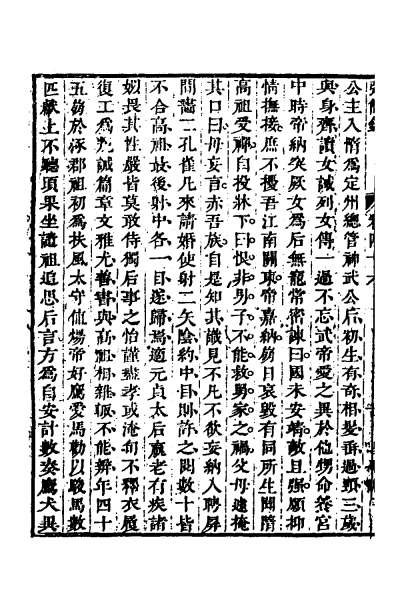 公主入隋為定州總管神武公后初生有奇相髮垂過頸三歲
與身齊讀女誡列女傳一過不忘武帝愛之異於他甥命養宮
中時帝納突厥女為后無寵常密諫曰國未安靖敵且強願抑
情撫接庶不擾吾江南關東帝嘉納崩日哀毀有同所生聞隋
高祖受禪自投牀下曰恨非男子不能救舅家之禍父母遽掩
其口曰毋妄言赤吾族自是知其識見不凡不欲妄納人聘屏
間畫二孔雀凡來請婚使射二矢陰約中目則許之閱數十皆
不合高祖最後射中各一目遂歸焉適元貞太后羸老有疾諸
姒畏其性嚴皆莫敢侍獨后事之怡謹盡孝或淹旬不釋衣履
復工為規誡篇章文雅尤善書與高祖相雜眎不能辨年四十
五崩於涿郡祖初為扶風太守值煬帝好鷹愛馬勸以駿馬數
匹獻上不聽頃果坐譴祖追思后言方為自安計數奏鷹犬異